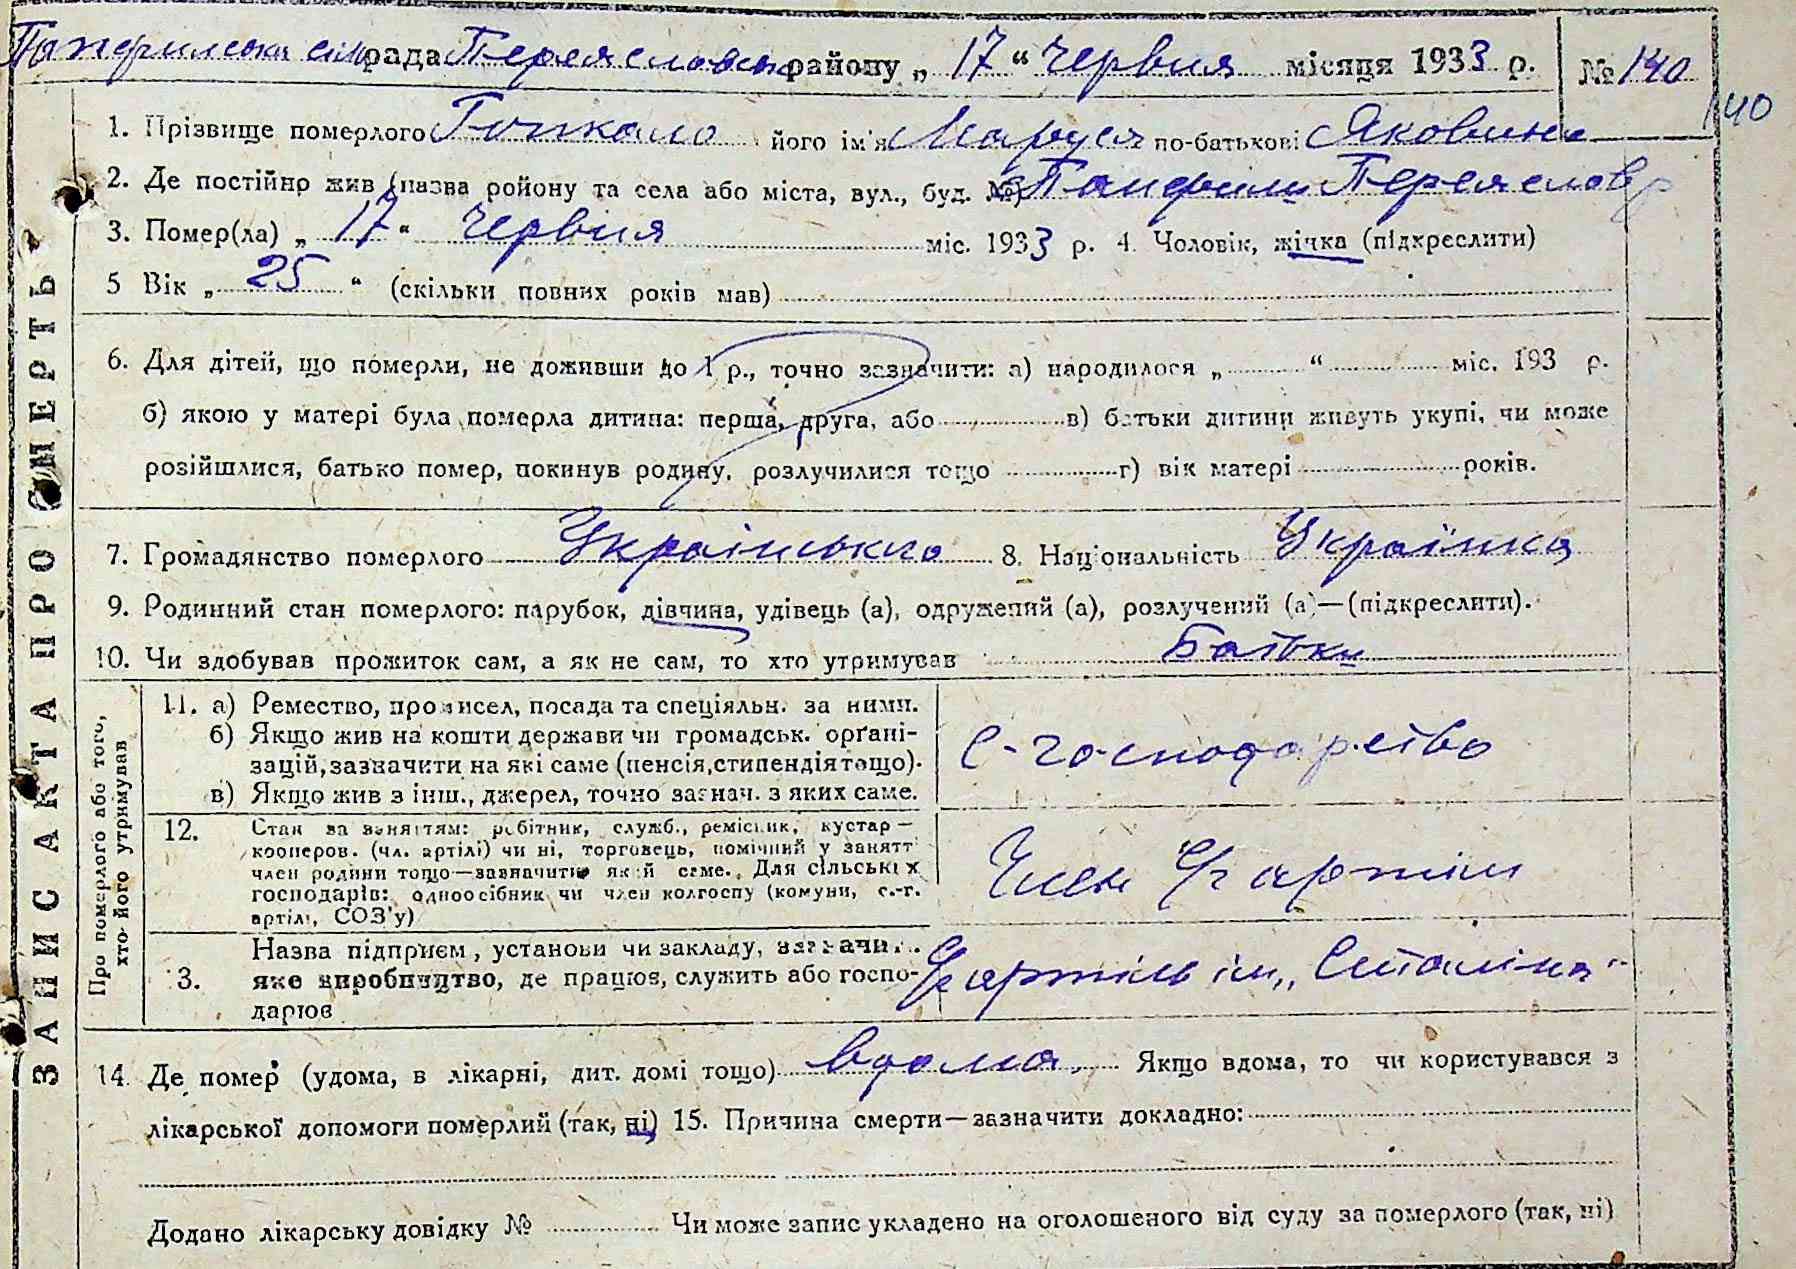 Панфильська сільрада Переяславськ району „ 17 “ Червня місяця 1933 р. № 140
140
1. Прізвище померлого його ім'я Маруся по-батькові Яковина
2. Де постійно жив (назва ройону та села або міста, вул., буд. №) Панфили Переяслов р
3. Помер(ла) „ 17 “ Червня міс. 1933 р. 4. Чоловік, жінка (підкреслити)
5 Вік „ 25 “ (скільки повних років мав)
6. Для дітей, що померли, не доживши до 1 р., точно зазначити: а) народилося „ “ міс. 193 р.
б) якою у матері була померла дитина: перша, друга, або в) батьки дитини живуть укупі, чи може
розійшлися, батько помер, покинув родину, розлучилися тощо г) вік матері років.
7. Громадянство померлого Українського 8. Національність Українка
9. Родинний стан померлого: парубок, дівчина, удівець (а), одружений (а), розлучений (а)—(підкреслити).
10. Чи здобував прожиток сам, а як не сам, то хто утримував Батьки
ЗАПИС АКТА ПРО СМЕРТЬ
Про померлого або того, хто його утримував
11. а) Ремество, промисел, посада та спеціяльн. за ними.
б) Якщо жив на кошти держави чи громадськ. орґані-
зацій, зазначити на які саме (пенсія, стипендія тощо).
в) Якщо жив з інш., джерел, точно зазнач. з яких саме.
С-господарство
12. Стан за заняттям: робітник, служб., ремісник, кустар —
кооперов. (чл. артілі) чи ні, торговець, помічний у занятт
член родини тощо—зазначити який саме. Для сільських
господарів: одноосібник чи член колгоспу (комуни, с.-г.
артілі, СОЗ'у)
Член артіли
13. Назва підприєм, установи чи закладу, зазначи..
яке виробництво, де працює, служить або госпо-
дарює
артіль ім „ Сталіна “
14. Де помер (удома, в лікарні, дит. домі тощо) вдома. Якщо вдома, то чи користувався з
лікарської допомоги померлий (так, ні) 15. Причина смерти—зазначити докладно:
Додано лікарську довідку № Чи може запис укладено на оголошеного від суду за померлого (так, ні)